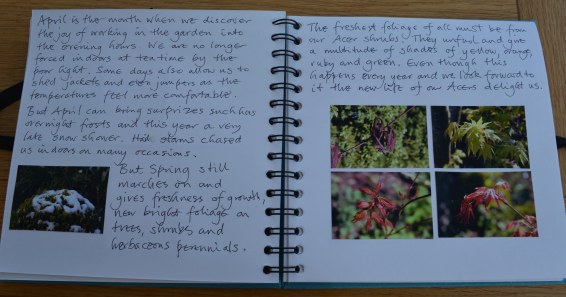 April is the month when we discover
the joy of working in the garden into
the evening hours. We are no longer
forced indoors at teatime by the
poor light. Some days also allow us to
shed jackets and even jumpers as the
temperatures feel more comfortable.
But April can bring surprizes such as
overnight frosts and this year a very
late snow shower. Hail stoms chased
us indoors on many occasions.
But Spring still
marches on and
gives freshness of growth,
new bright foliage on
trees, shrubs and
herbaceous perennials.
The freshest foliage of all must be from
our Acer shrubs. They unfurl and give
a multitude of shades of yellow, orange,
ruby and green. Even though this
happens every year and we look forward to
it the new life of our Acers delight us.